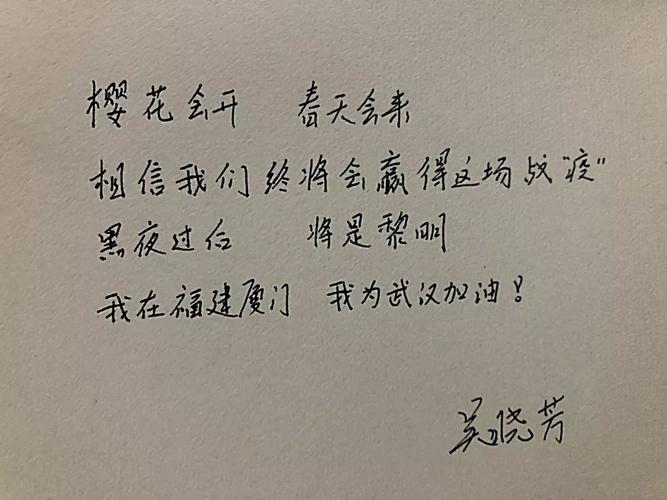 樱花会开 春天会来
相信我们终将会赢得这场战"疫"
黑夜过后 将是黎明
我在福建厦门 我为武汉加油!
吴晓芳